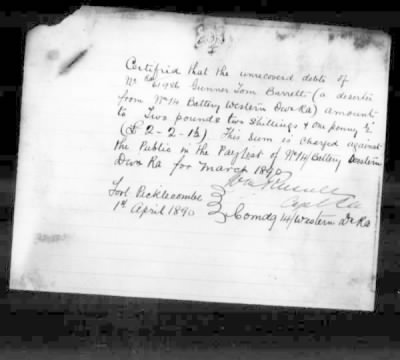 Certified that the unrecovered debts of
No 41986 Gunner Tom Barrett (a deserter
from No 14 Battery Western Divn Ra) amount
to Two pounds two shillings & one penny ½
(£ 2-2-1½) This sum is charged against
the Public in the Paylist of No 14/Battery Western
Divn Ra for March 1890
Capt Ra
Fort Picklecombe
1st April 1890
Comdg 14/Western Dn Ra